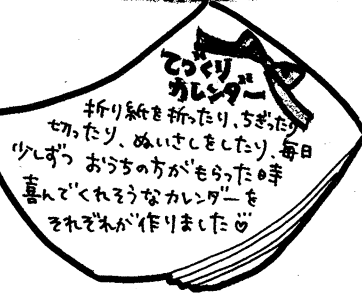 てづくり
カレンダー
折り紙を折ったり、ちぎったり
切ったり、ぬいさしをしたり、毎日
少しずつ おうちの方がもらった時
喜んでくれそうなカレンダーを
それぞれが作りました♡